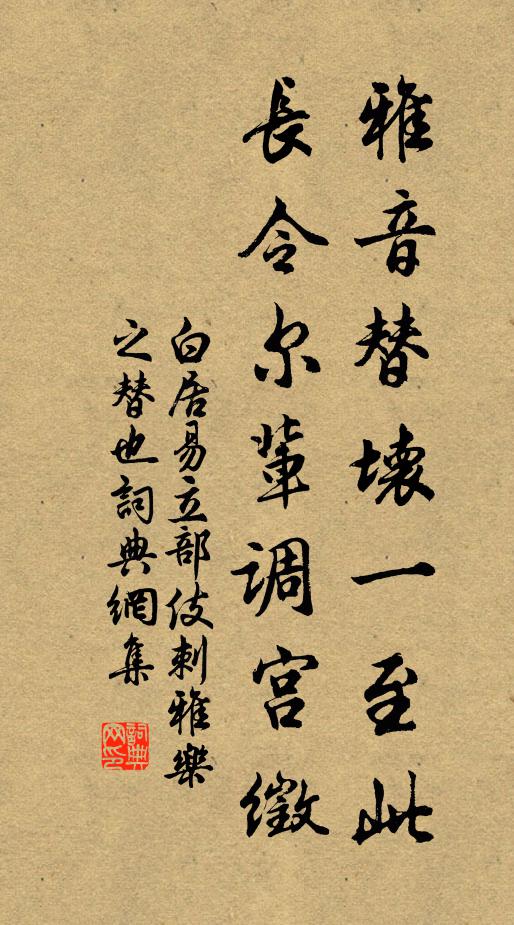 雅音替壞一至此
長令尔輩調宮徵
白居易立部伎刺雅樂
之替也詞典網集
詞典網印